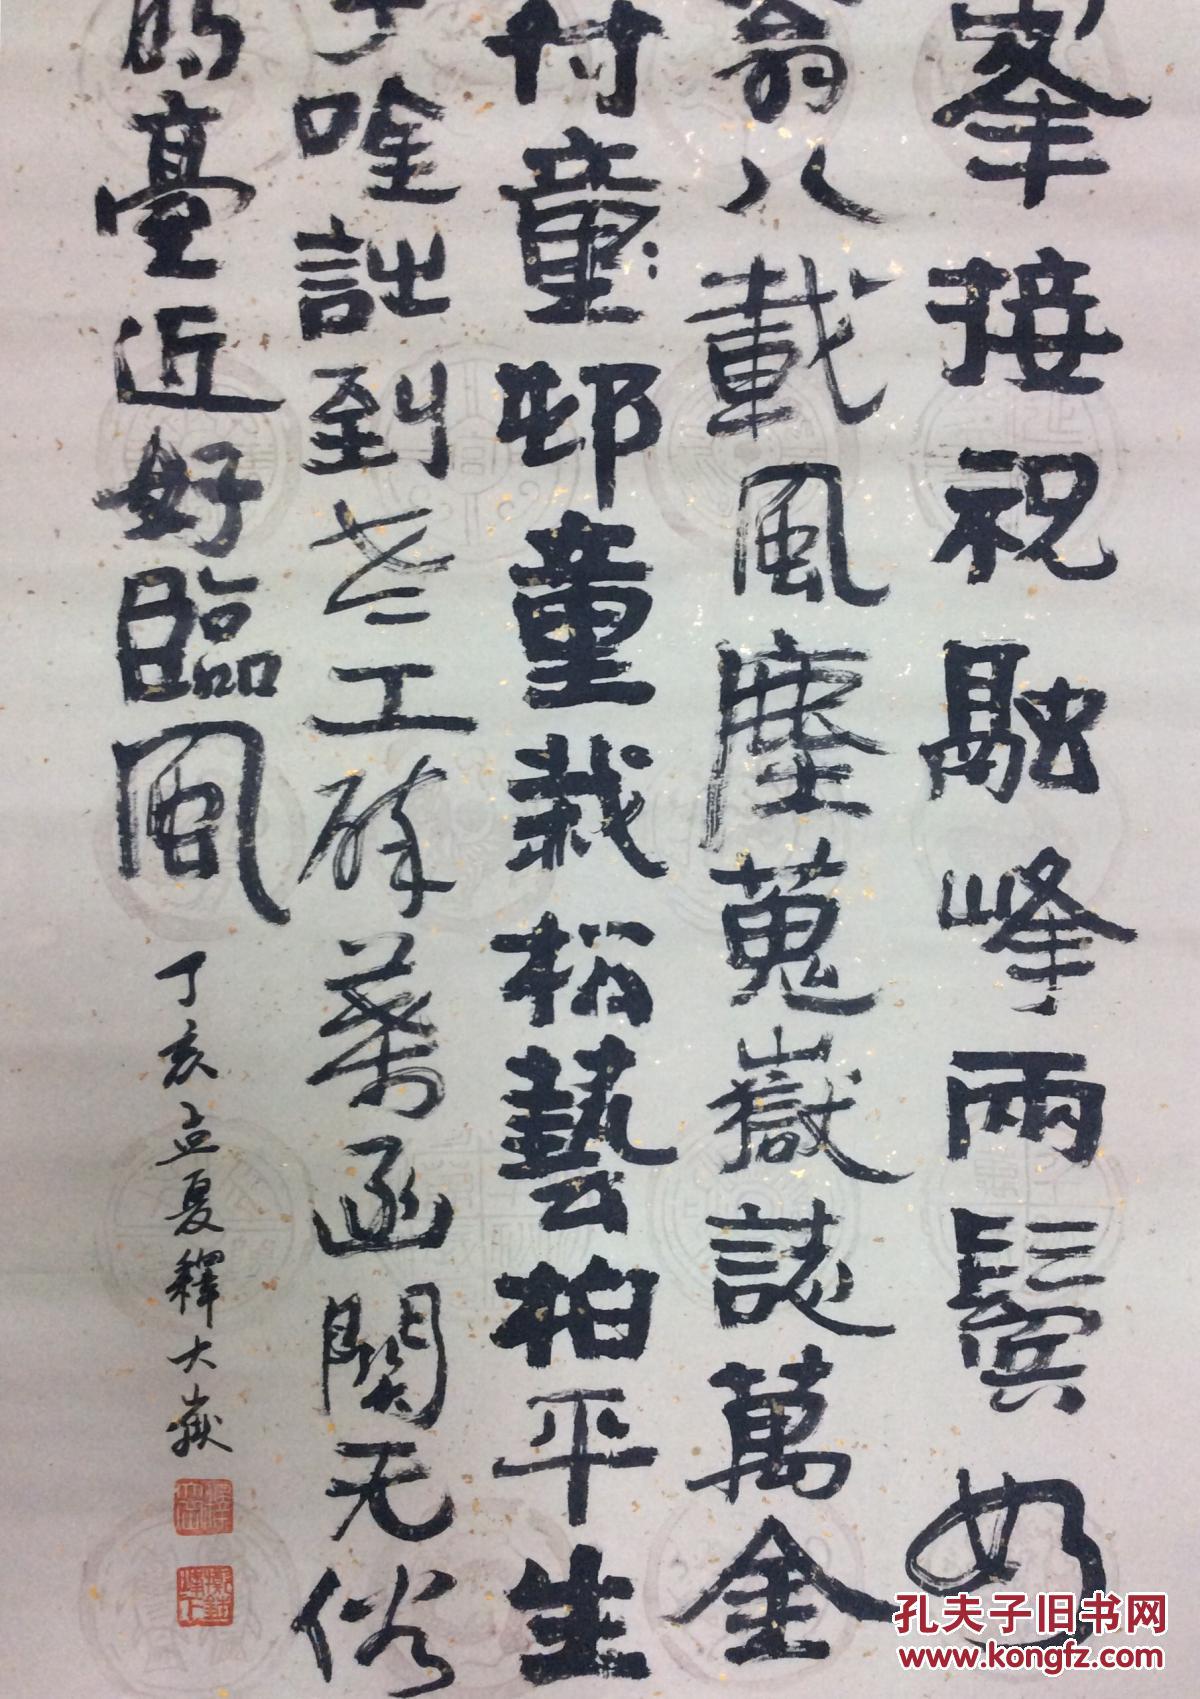 峯接祝融峰兩鬢如
翁八載風塵蒐嶽誌萬金
付童邨童栽松藝柏平生
唫詩到老工醉葉函關无俗
亳近好臨風
丁亥立夏釋大嶽
孔夫子旧书网
www.kongfz.com